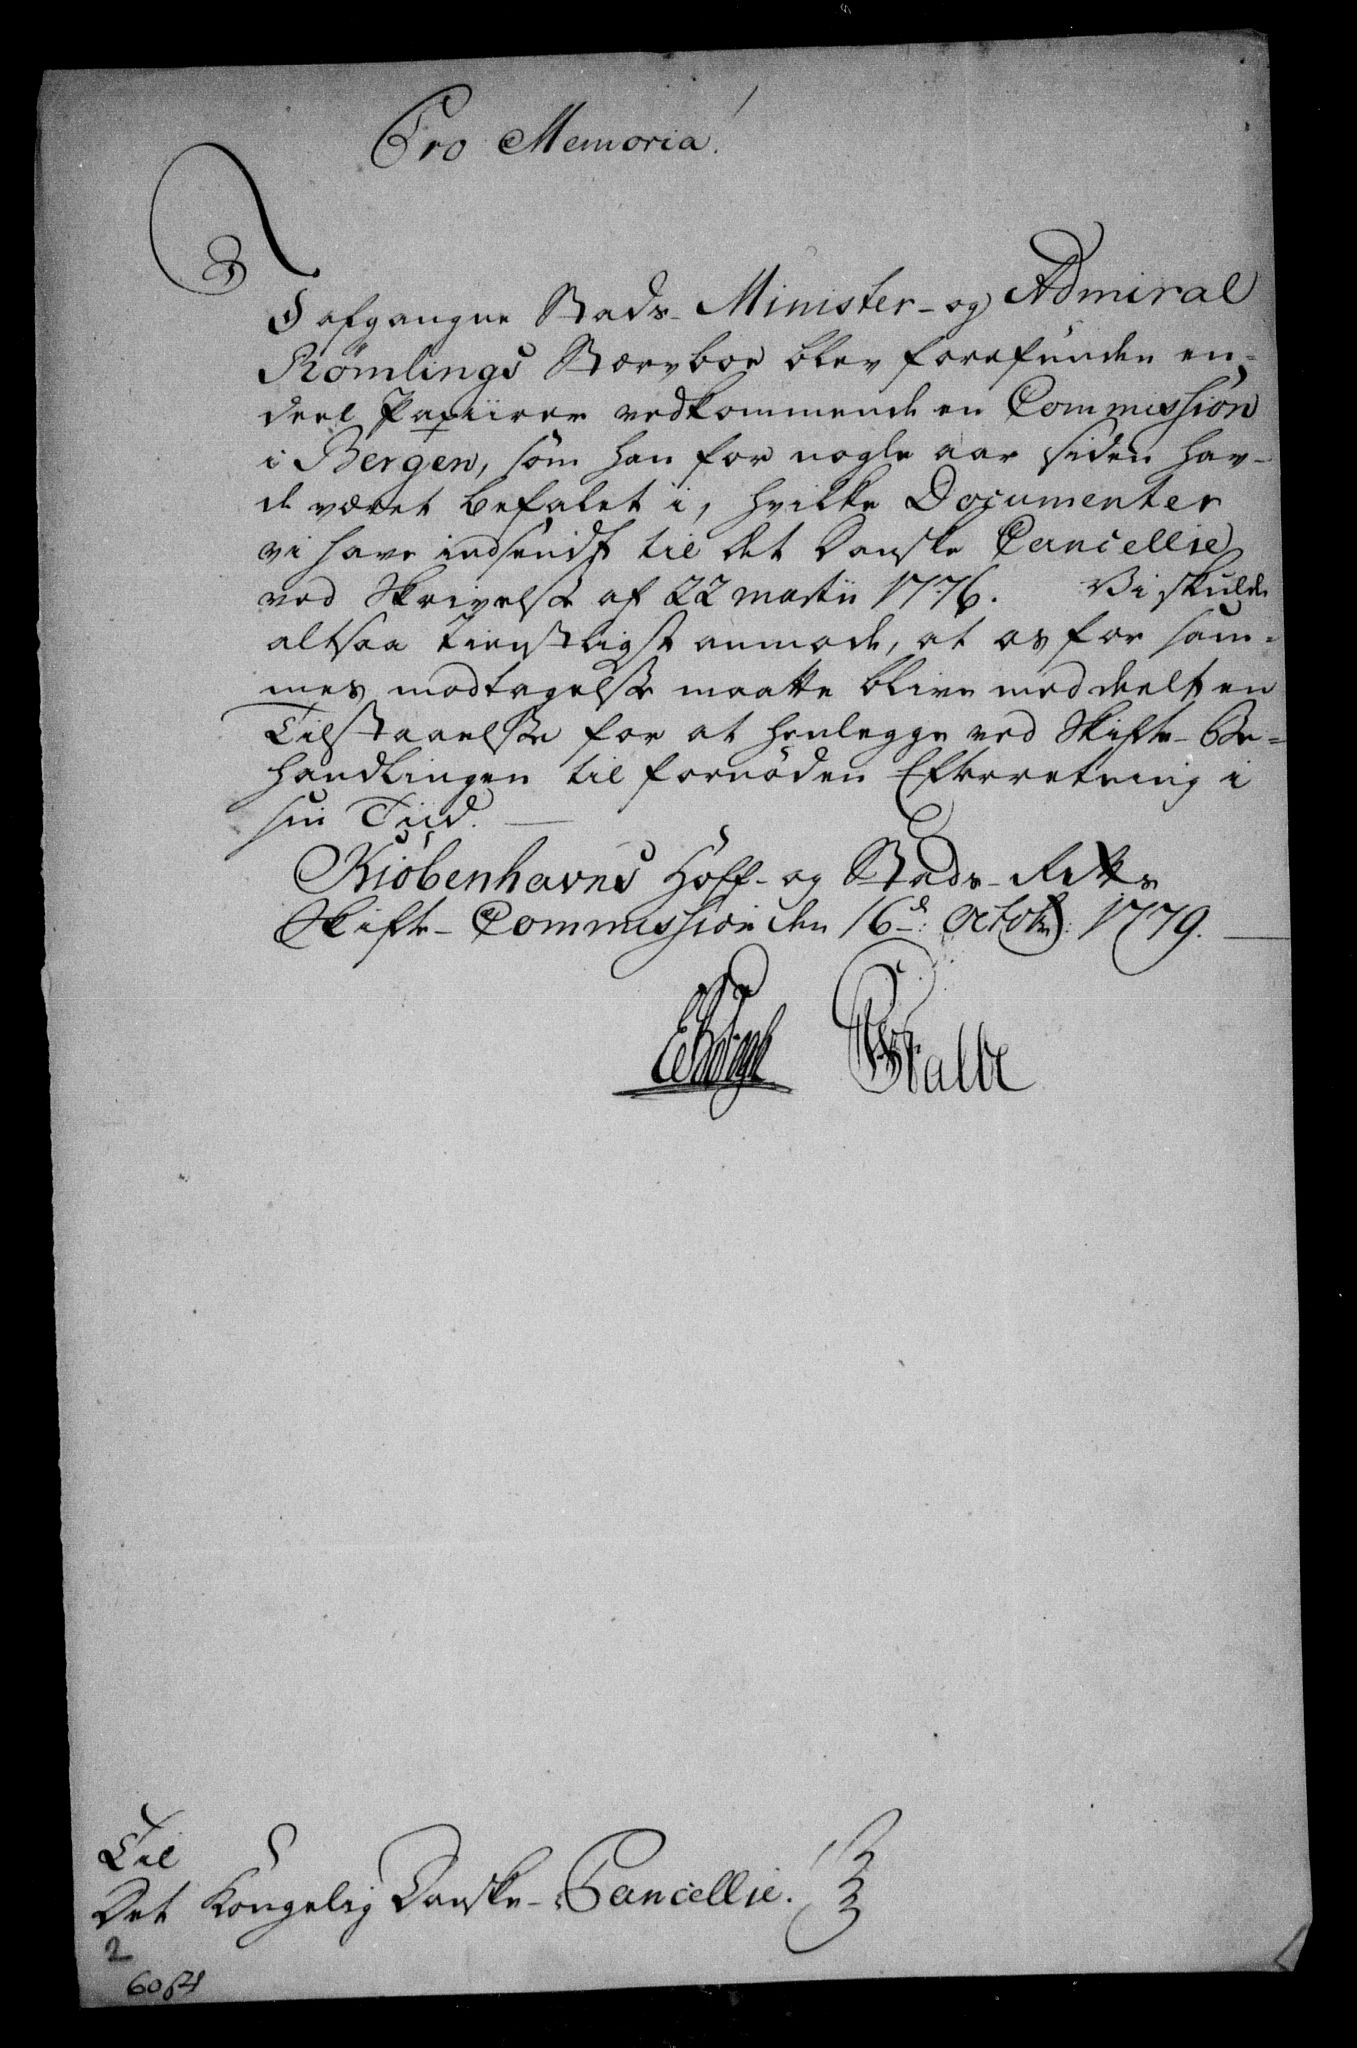 Pro Memoria!
I afgangne Stads-Minister- og Admiral
Römlings Stærvboe blev forefunden en-
deel Papiirer vedkommende en Commission
i Bergen, som han for nogle aar siden hav-
de været befalet i, hvilke Documenter
vi have indsendt til det Danske Cancellie
ved Skrivelse af 22 Martii 1776. Vi skulde
altsaa tienstligst anmode, at os for sam-
mes modtagelse maatte blive meddeelt en
Tilstaaelse for at henlegge ved Skifte-Be-
handlingen til fornöden Efterretning i
sin Tiid.
Kiöbenhavns Hoff- og Stads-Retts
Skifte-Commission den 16d: Octobr: 1779.
Til
Det Kongelig Danske-Cancellie!
2